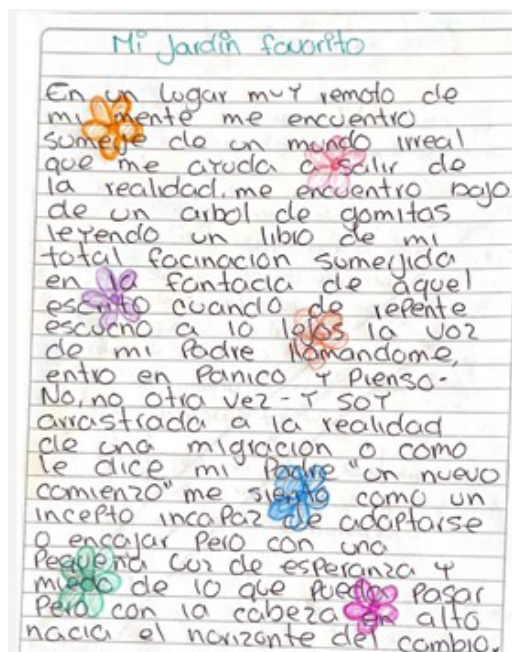 Mi Jardin favorito
En un lugar muy remoto de
mi mente me encuentro
sumerje de un mundo irreal
que me ayuda a salir de
la realidad. me encuentro bajo
de un arbol de gomitas
leyendo un libro de mi
total facinacion sumerjida
en la fantacia de aquel
escrito cuando de repente
escucho a lo lejos la voz
de mi Padre llamandome,
entro en Panico y Pienso-
No, no otra vez-Y soy
arrastrada a la realidad
de una migracion o como
le dice mi Padre "un nuevo
comienzo" me siento como un
incepto incapaz de adaptarse
o encajar Pero con una
Pequeña luz de esperanza y
miedo de lo que puede Pasar
Pero con la cabeza en alto
hacia el horizonte del cambio.